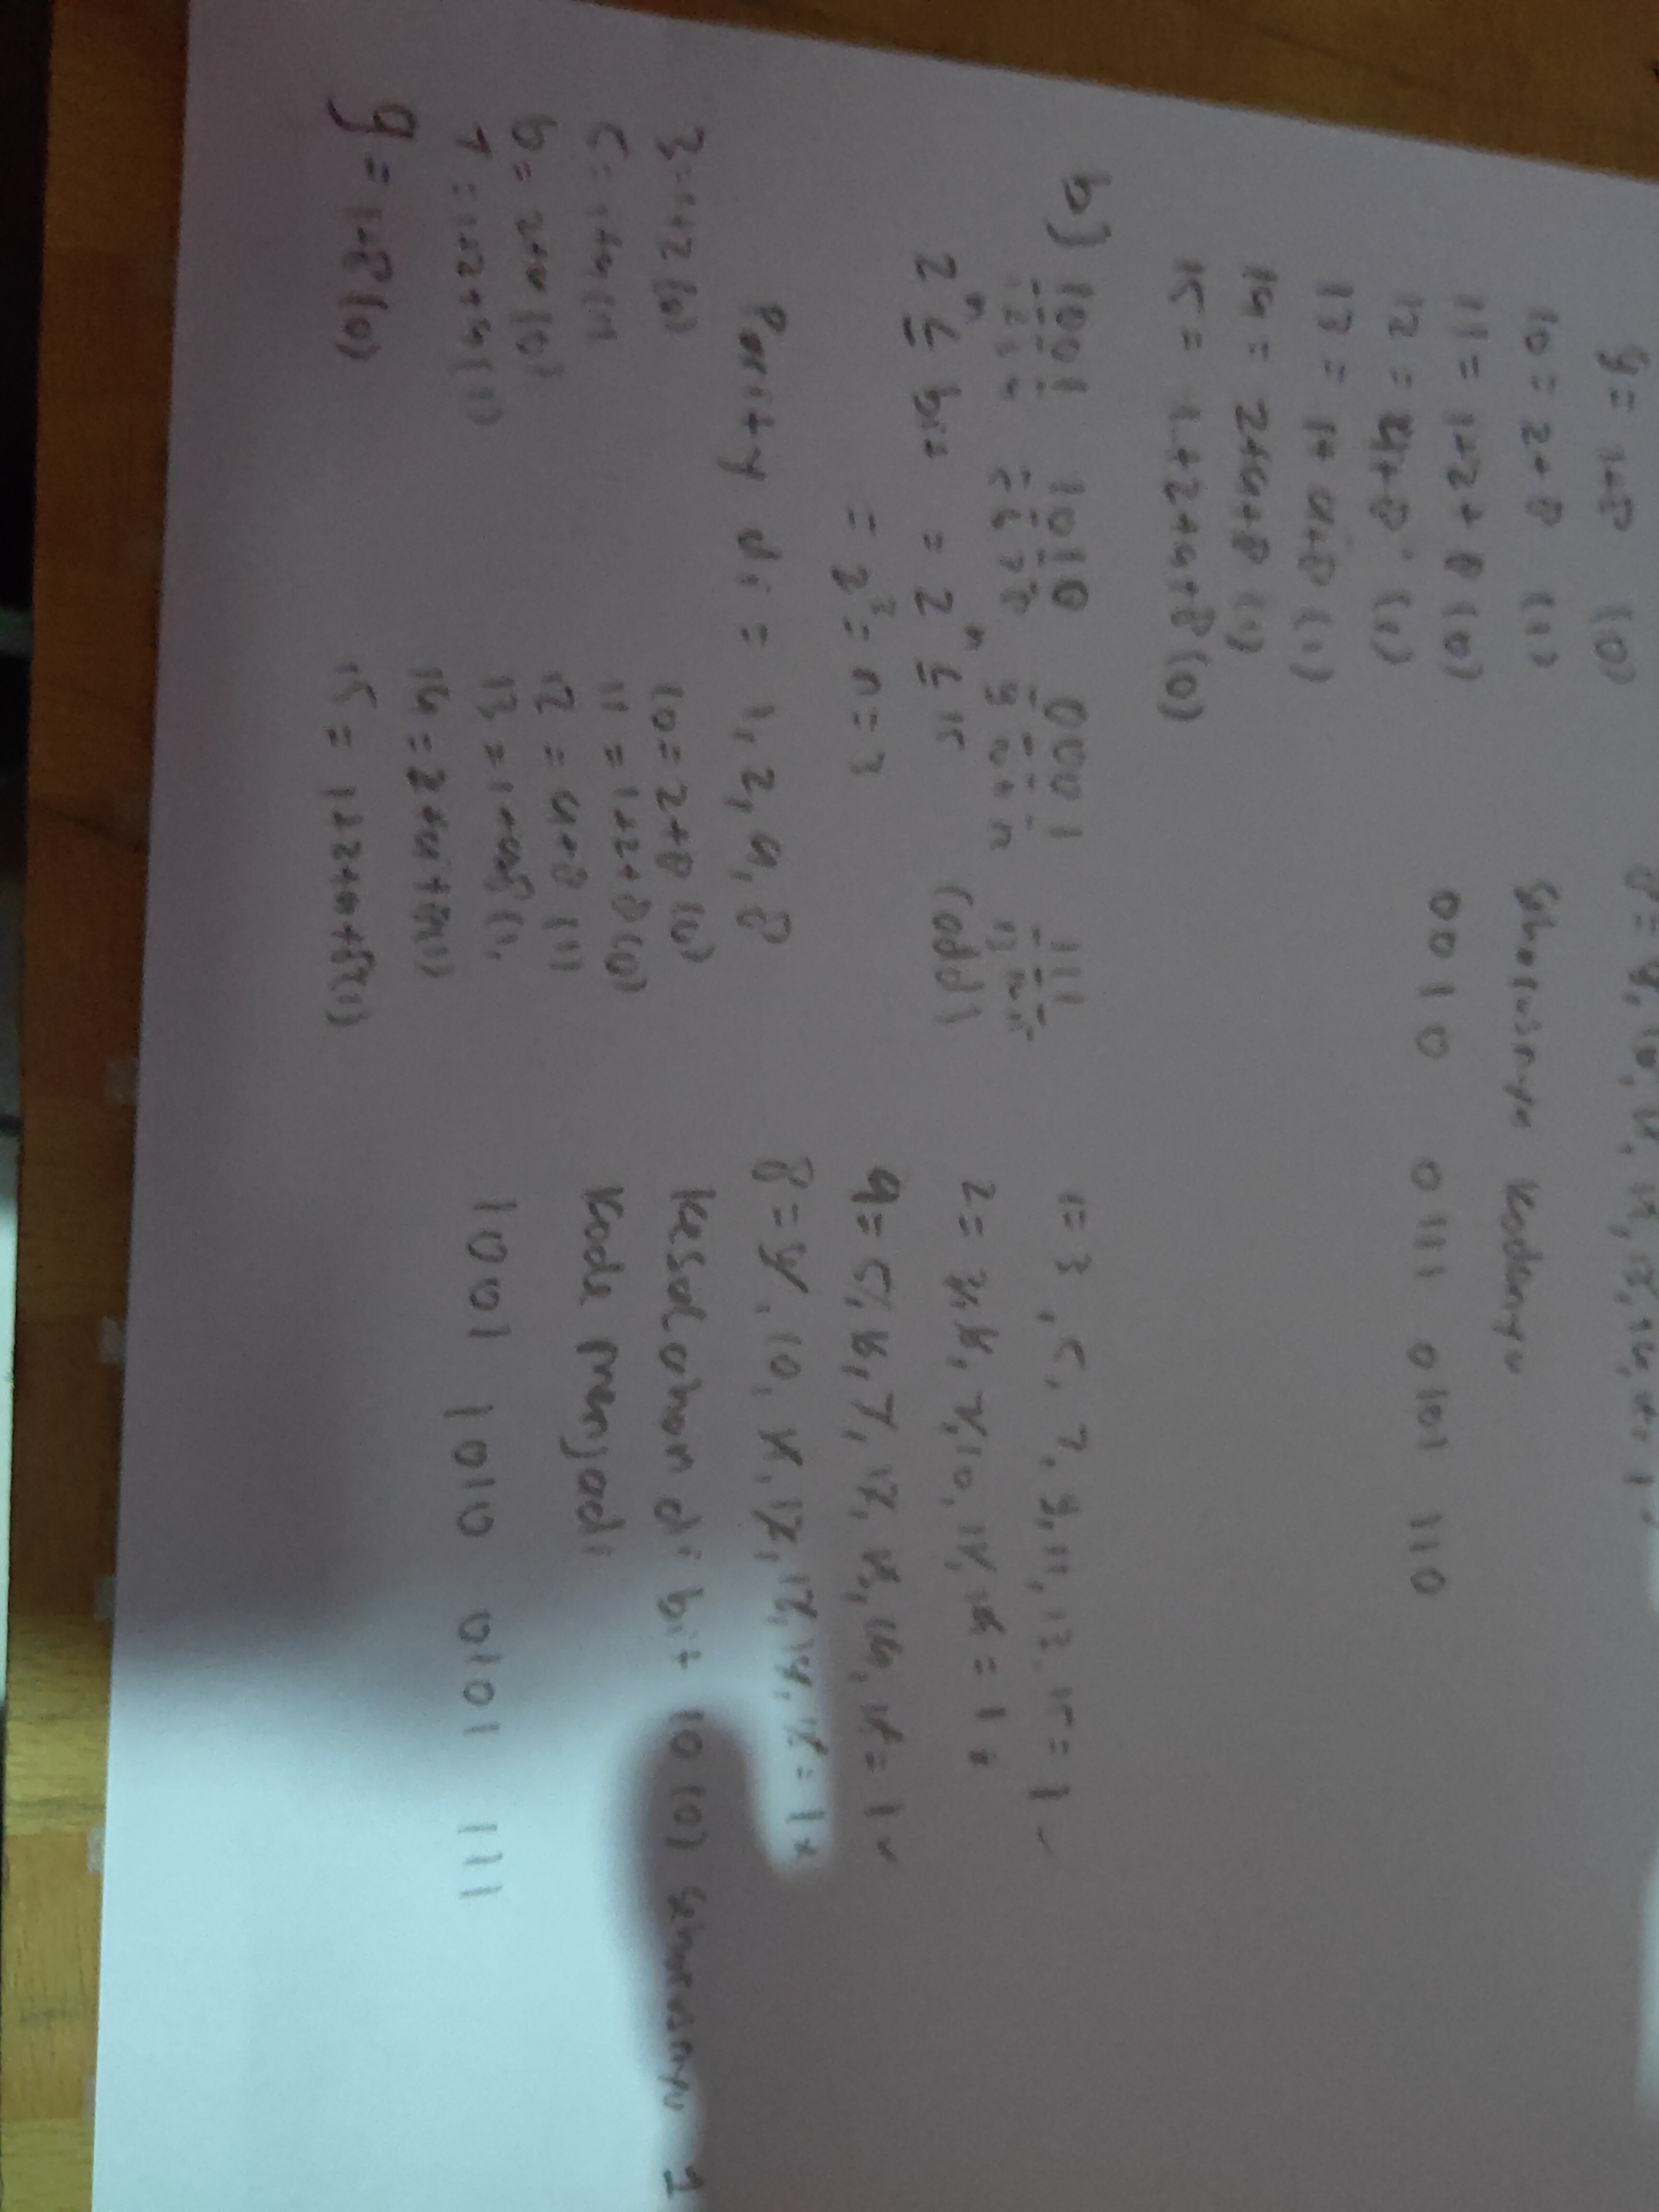 9 = 1+8 (0)
10 = 2+8 (1)
11 = 1+2+8 (0)
12 = 4+8 (1)
13 = 1+4+8 (1)
14 = 2+4+8 (1)
15 = 1+2+4+8 (0)
Seharusnya kodenya
0010 0111 0101 110
b) 1001 1010 0001 111
1 2 3 4 5 6 7 8 9 10 11 12 13 14 15
2ⁿ ≤ bit = 2ⁿ ≤ 15 (odd)
= 2³ = n = 3
Parity di = 1, 2, 4, 8
3 = 1+2 (0)
5 = 1+4 (1)
6 = 2+4 (0)
7 = 1+2+4 (1)
9 = 1+8 (0)
10 = 2+8 (0)
11 = 1+2+8 (0)
12 = 4+8 (1)
13 = 1+4+8 (1)
14 = 2+4+8 (1)
15 = 1+2+4+8 (1)
1 = 3, 5, 7, 9, 11, 13, 15 = 1
2 = 3, 6, 7, 10, 11, 14, 15 = 1 x
4 = 5, 6, 7, 12, 13, 14, 15 = 1 ✓
8 = 9, 10, 11, 12, 13, 14, 15 = 1 x
Kesalahan di bit 10 (0) seharusnya 1
Kode menjadi
1001 1010 0101 111